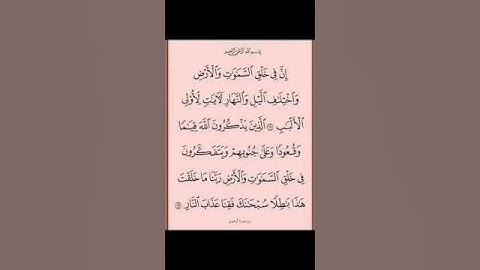 بسم الله الرحمن الرحيم
إِنَّ فِى خَلْقِ ٱلسَّمَـٰوَٰتِ وَٱلْأَرْضِ
وَٱخْتِلَـٰفِ ٱلَّيْلِ وَٱلنَّهَارِ لَـَٔايَـٰتٍ لِّأُو۟لِى
ٱلْأَلْبَـٰبِ ۝ ٱلَّذِينَ يَذْكُرُونَ ٱللَّهَ قِيَـٰمًا
وَقُعُودًا وَعَلَىٰ جُنُوبِهِمْ وَيَتَفَكَّرُونَ
فِى خَلْقِ ٱلسَّمَـٰوَٰتِ وَٱلْأَرْضِ رَبَّنَا مَا خَلَقْتَ
هَـٰذَا بَـٰطِلًا سُبْحَـٰنَكَ فَقِنَا عَذَابَ ٱلنَّارِ ۝